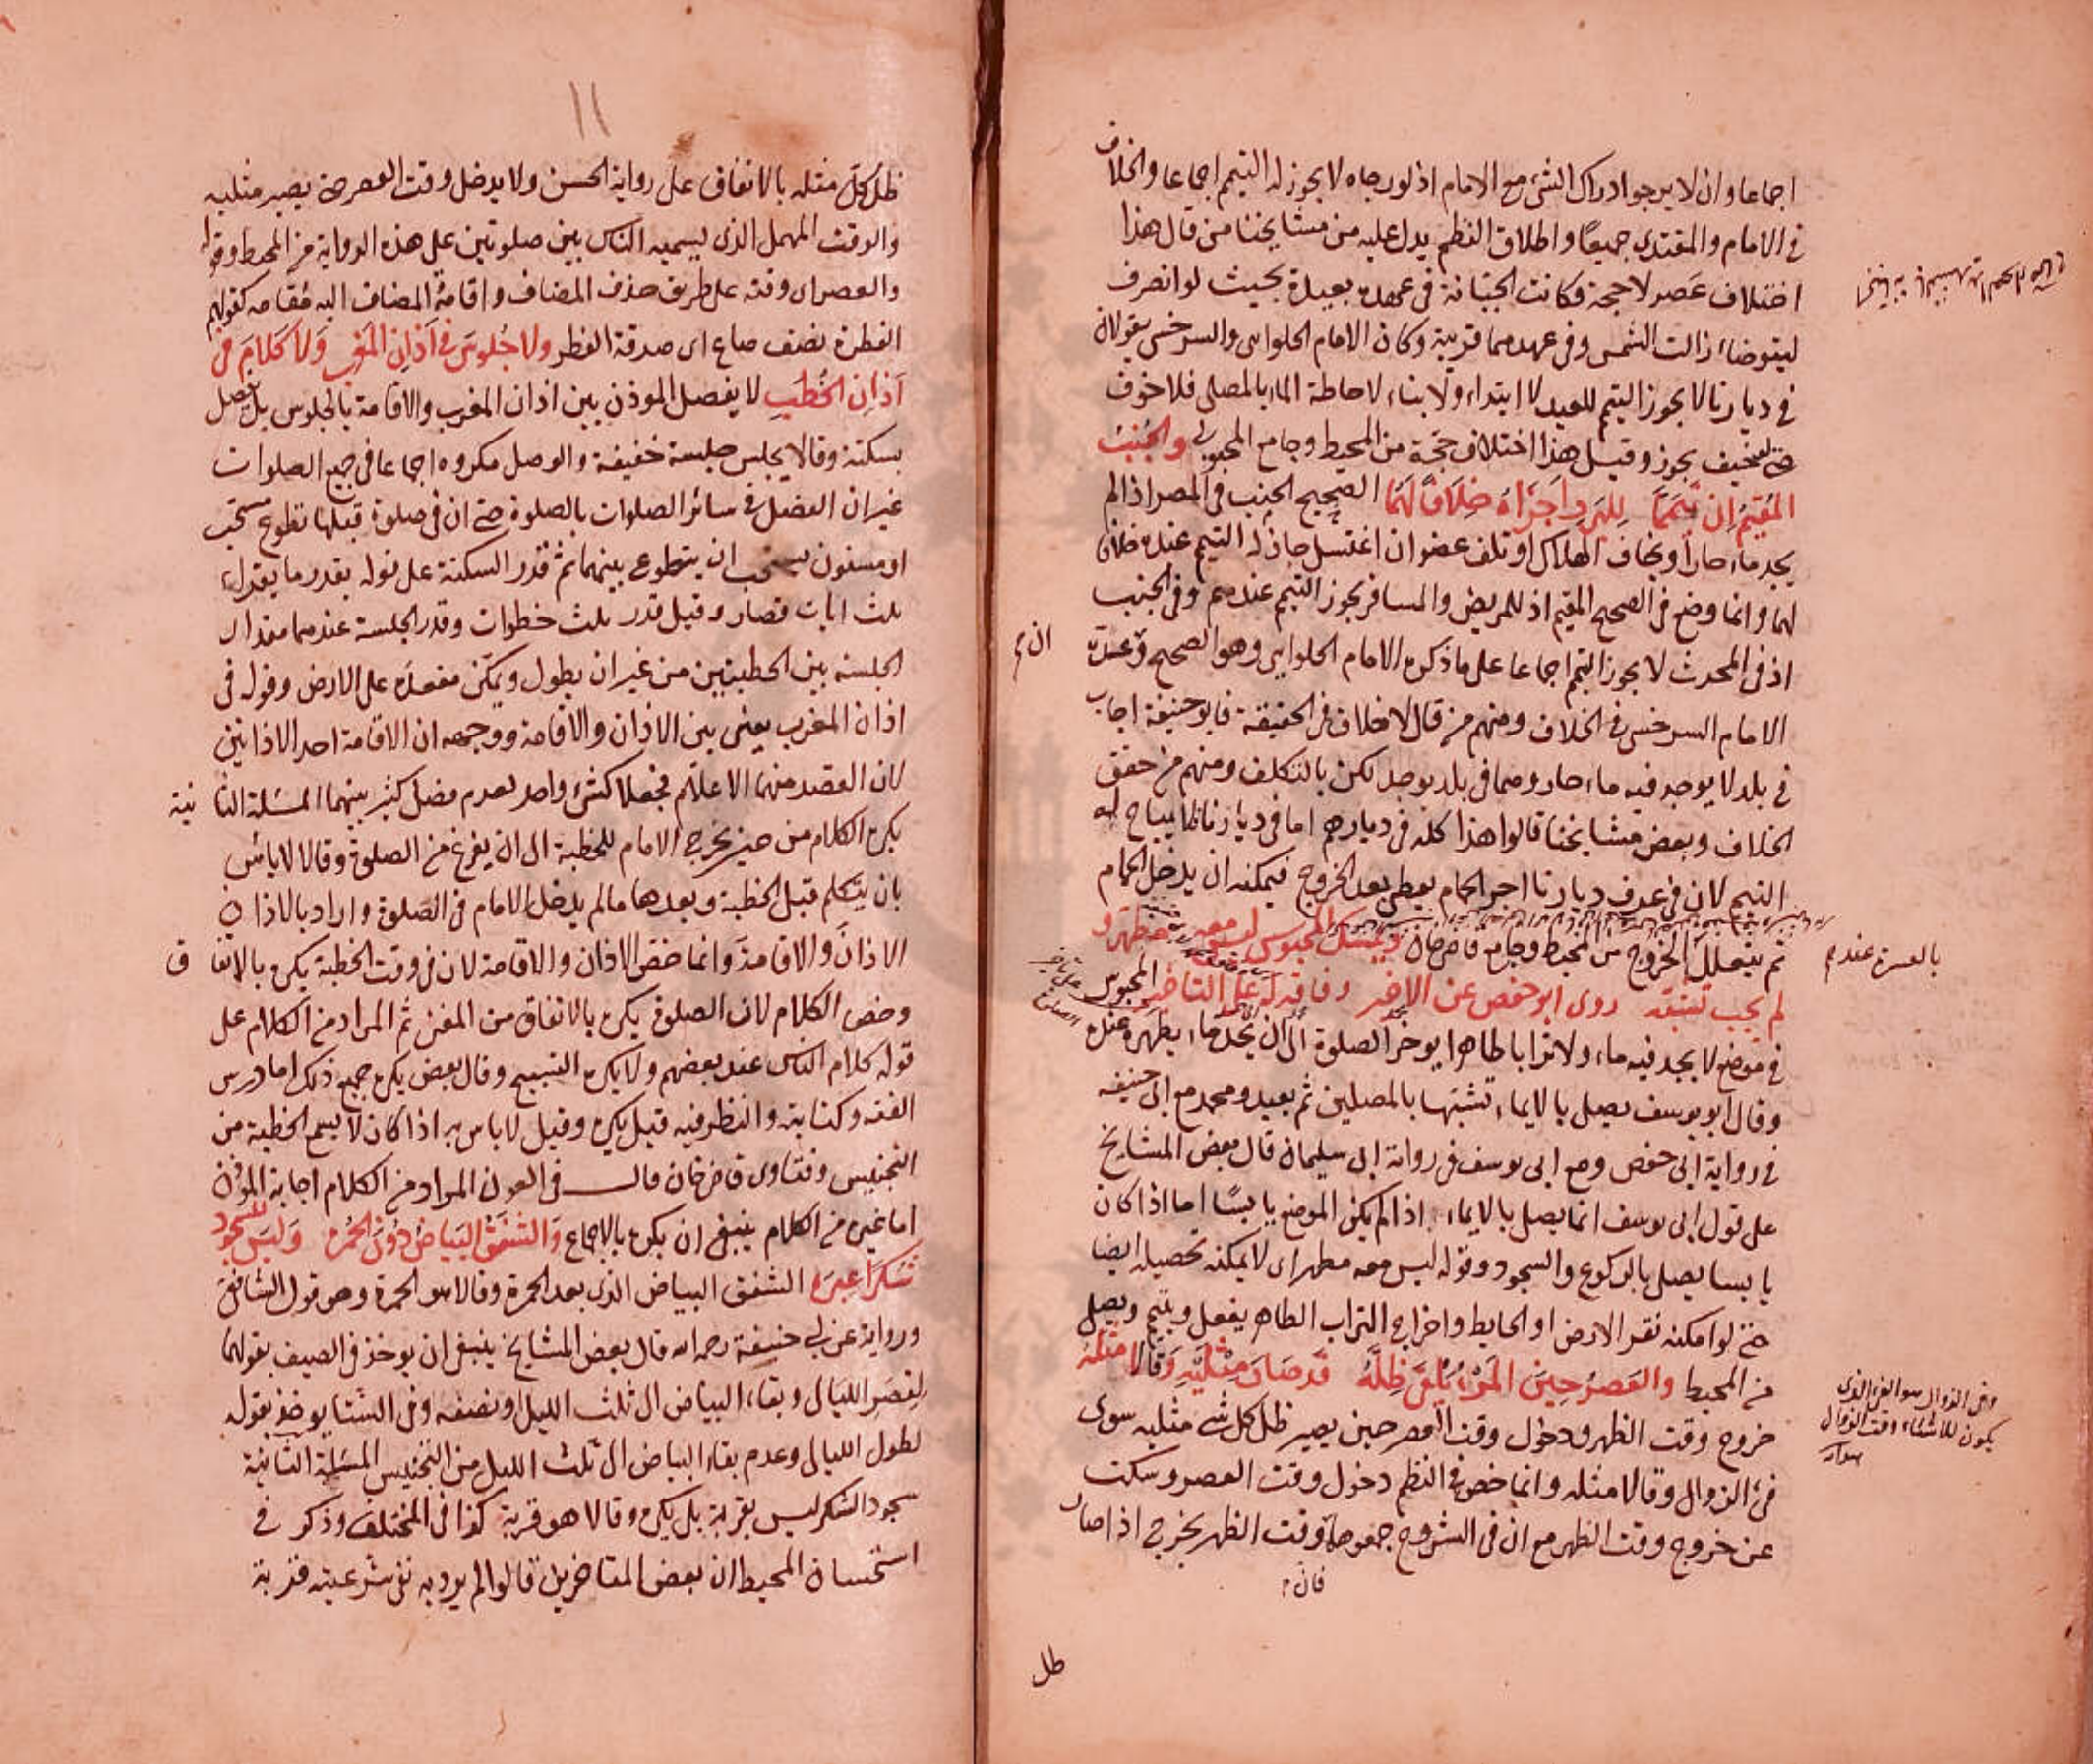 اجماعا وان لا يرجو ادراك الشئ مع الامام اذ لو رجاه لا يجوز له التيمم اجماعا والخلاف
في الامام والمقتدي جميعا واطلاق النظم يدل عليه من مشايخنا من قال هذا
اختلاف عصر لا حجة فكانت الجبانة في عهده بعيدة بحيث لو انصرف
ليتوضاء زالت الشمس وفي عهدهما قريبة وكان الامام الحلواني والسرخسي يقولان
في ديارنا لا يجوز التيمم للعيد لا ابتداء ولا بناء لاحاطة الماء بالمصلى فلا خوف
حتى لو خيف يجوز وقيل هذا اختلاف حجة من المحيط وجامع المحبوبي والجنب
المقيم ان تيمما للبرد اجزاه خلافا لهما الصحيح الجنب في المصر اذا لم
يجد ماء حارا ويخاف الهلاك او تلف عضو ان اغتسل جاز له التيمم عنده خلافا
لهما وانما وضع في الصحيح المقيم اذ للمريض والمسافر يجوز التيمم عندهم وفي الجنب
اذ في المحدث لا يجوز التيمم اجماعا على ما ذكره الامام الحلواني وهو الصحيح وعند
الامام السرخسي في الخلاف ومنهم من قال لا خلاف في الحقيقة فابو حنيفة اجاب
في بلد لا يوجد فيه ماء حار وهما في بلد يوجد لكن بالتكلف ومنهم من حقق
الخلاف وبعض مشايخنا قالوا هذا كله في ديارهم اما في ديارنا فلا يباح له
التيمم لان في عرف ديارنا اجر الحمام يعطى بعد الخروج فيمكنه ان يدخل الحمام
ثم يتعلل الخروج من المحيط وجامع قاضي خان ويمسك المحبوس ليس معه مطهر و
لم يجب تشبه روى ابو حفص عن الاخير وفاقه له على التاخير المحبوس
في موضع لا يجد فيه ماء ولا ترابا طاهرا يوخر الصلوة الى ان يجد ماء يطهره عنده
وقال ابو يوسف يصلي بالايماء تشبها بالمصلين ثم يعيد ومحمد مع ابي حنيفه
في رواية ابي حفص ومع ابي يوسف في رواية ابي سليمان قال بعض المشايخ
على قول ابي يوسف انما يصلي بالايماء اذا لم يكن الموضع يابسا اما اذا كان
يابسا يصلي بالركوع والسجود وقوله ليس معه مطهر اى لا يمكنه تحصيله ايضا
حتى لو امكنه نقر الارض او الحايط واخراج التراب الطاهر يفعل ويتيمم ويصلي
من المحيط والعصر حين المرء يلقى ظله قد صار مثليه وقالا مثله
خروج وقت الظهر ودخول وقت العصر حين يصير ظل كل شئ مثليه سوى
فئ الزوال وقالا مثله وانما خص في النظم دخول وقت العصر وسكت
عن خروج وقت الظهر مع ان في الشروح جمعوها وقت الظهر يخرج اذا صار
فان
ظل
ان م
بالعسرة عندهم
وفئ الزوال هو الفئ الذى
يكون للاشياء وقت الزوال
١١
ظل كل مثله بالاتفاق على رواية الحسن ولا يدخل وقت العصر حتى يصير مثليه
والوقت المهمل الذى يسميه الناس بين صلوتين على هذه الرواية من المحيط وقوله
والعصر اى وقته على طريق حذف المضاف واقامة المضاف اليه مقامه كقولهم
الفطرة نصف صاع اى صدقة الفطر ولا جلوس في اذان المغرب ولا كلام في
اذان الخطب لا يفصل الموذن بين اذان المغرب والاقامة بالجلوس بل يفصل
بسكتة وقالا يجلس جلسة خفيفة والوصل مكروه اجماعا في جميع الصلوات
غير ان الفضل في سائر الصلوات بالصلوة حتى ان في صلوة قبلها تطوع مستحب
او مسنون يستحب ان يتطوع بينهما ثم قدر السكتة على قوله بقدر ما يقراء
ثلث ايات قصار وقيل قدر ثلث خطوات وقدر الجلسة عندهما مقدار
الجلسة بين الخطبتين من غير ان يطول ويمكن مقعده على الارض وقوله في
اذان المغرب يعنى بين الاذان والاقامة ووجهه ان الاقامة احد الاذانين
لان القصد منهما الاعلام فجعلا كشئ واحد لعدم فصل كثير بينهما المسئلة الثانية
يكره الكلام من حين يخرج الامام للخطبة الى ان يفرغ من الصلوة وقالا لا باس
بان يتكلم قبل الخطبة وبعدها ما لم يدخل الامام في الصلوة واراد بالاذان
الاذان والاقامة وانما خص الاذان والاقامة لان في وقت الخطبة يكره بالاتفاق
وخص الكلام لان الصلوة يكره بالاتفاق من المغنى ثم المراد من الكلام على
قوله كلام الناس عند بعضهم ولا يكره التسبيح وقال بعض يكره جميع ذلك اما درس
الفقه وكتابته والنظر فيه قيل يكره وقيل لا باس به اذا كان لا يسمع الخطبة من
التجنيس وفتاوى قاضي خان قال في العون المراد من الكلام اجابة الموذن
اما غيره من الكلام ينبغي ان يكره بالاجماع والشفق البياض دون الحمره وليس للسجود
شكرا عبره الشفق البياض الذى بعد الحمرة وقالا هو الحمرة وهو قول الشافعي
ورواية عن ابي حنيفة رحمه الله قال بعض المشايخ ينبغي ان يوخذ في الصيف بقولهما
لقصر الليالى وبقاء البياض الى ثلث الليل او نصفه وفي الشتا يوخذ بقوله
لطول الليالى وعدم بقاء البياض الى ثلث الليل من التجنيس المسئلة الثانية
سجود الشكر ليس بقربة بل يكره وقالا هو قربة كذا في المختلف وذكر في
استحسان المحيط ان بعض المتاخرين قالوا لم يرد به نفى شرعيته قربة